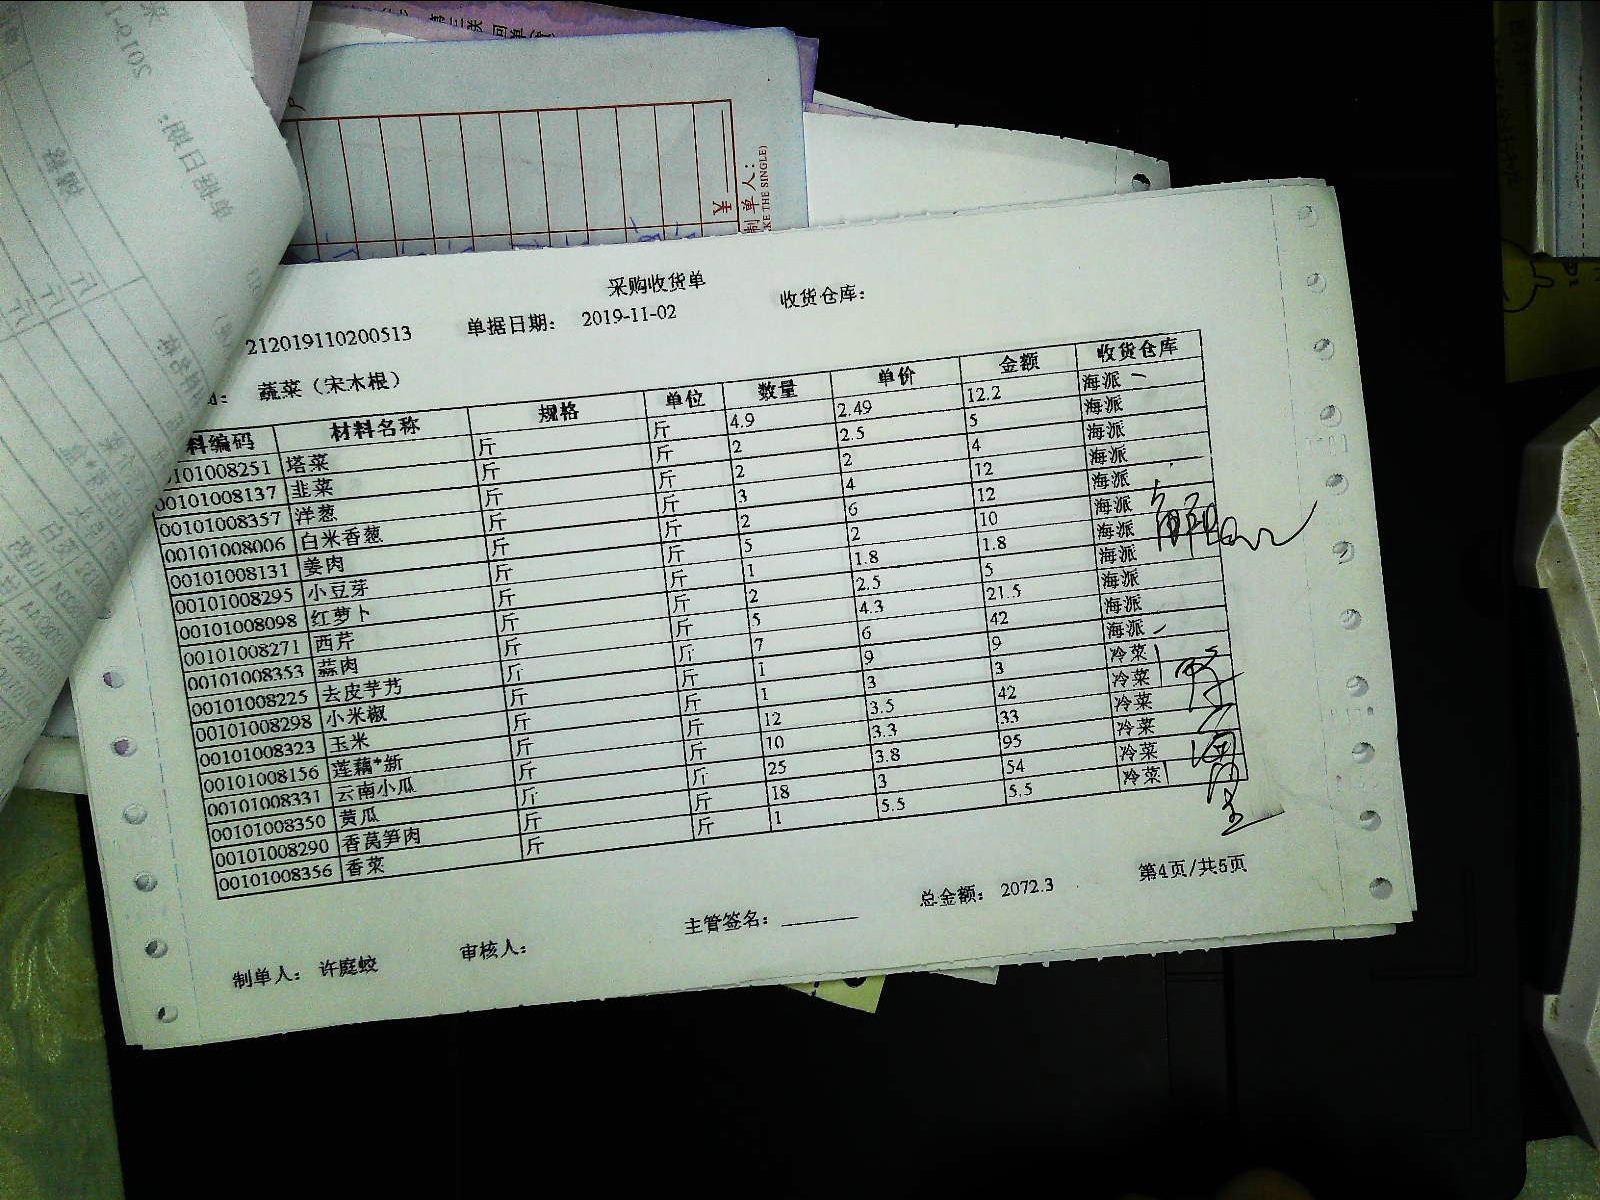 第三联 回单
¥
制单人:
KE THE SINGLE)
单据日期:
2019-11
采购收货单
212019110200513 单据日期: 2019-11-02 收货仓库:
蔬菜（宋木根）
料编码 材料名称 规格 单位 数量 单价 金额 收货仓库
0101008251 塔菜 斤 斤 4.9 2.49 12.2 海派
00101008137 韭菜 斤 斤 2 2.5 5 海派
00101008357 洋葱 斤 斤 2 2 4 海派
00101008006 白米香葱 斤 斤 3 4 12 海派
00101008131 姜肉 斤 斤 2 6 12 海派
00101008295 小豆芽 斤 斤 5 2 10 海派
00101008098 红萝卜 斤 斤 1 1.8 1.8 海派
00101008271 西芹 斤 斤 2 2.5 5 海派
00101008353 蒜肉 斤 斤 5 4.3 21.5 海派
00101008225 去皮芋艿 斤 斤 7 6 42 海派
00101008298 小米椒 斤 斤 1 9 9 海派
00101008323 玉米 斤 斤 1 3 3 冷菜
00101008156 莲藕*新 斤 斤 12 3.5 42 冷菜
00101008331 云南小瓜 斤 斤 10 3.3 33 冷菜
00101008350 黄瓜 斤 斤 25 3.8 95 冷菜
00101008290 香莴笋肉 斤 斤 18 3 54 冷菜
00101008356 香菜 斤 斤 1 5.5 5.5 冷菜
主管签名: 总金额: 2072.3 第4页/共5页
制单人: 许庭蛟 审核人: